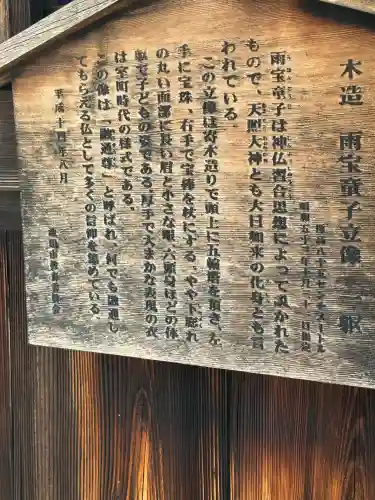 木造 雨宝童子立像 一躯
像高八十五センチメートル
雨宝童子は神仏習合思想によって説かれた
もので、天照大神とも大日如来の化身とも言
われている。
この立像は寄木造りで頭上に五輪塔を頂き、左
手に宝珠、右手で宝棒を杖にする。やや下膨れ
の丸い面部に長い眉と小さな唇、六頭身ほどの体
躯で子どもの姿である。厚手で大まかな表現の衣
は室町時代の様式である。
この像は「融通尊」と呼ばれ、何でも融通し
てもらえる仏として多くの信仰を集めている。
平成十四年八月
市教育委員会